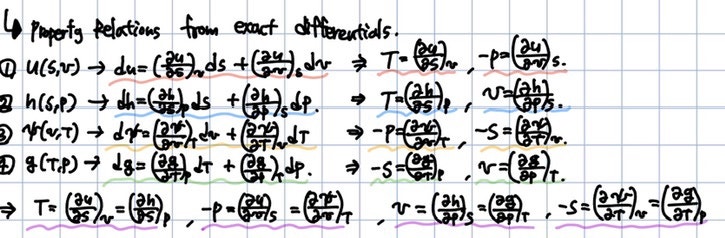 ↳ Property Relations from exact differentials.
① u(s,v) → du=(∂u/∂s)_v ds + (∂u/∂v)_s dv ⇒ T=(∂u/∂s)_v , -p=(∂u/∂v)_s.
② h(s,p) → dh=(∂h/∂s)_p ds + (∂h/∂p)_s dp. ⇒ T=(∂h/∂s)_p , v=(∂h/∂p)_s.
③ ψ(v,T) → dψ=(∂ψ/∂v)_T dv + (∂ψ/∂T)_v dT ⇒ -p=(∂ψ/∂v)_T , -s=(∂ψ/∂T)_v.
④ g(T,p) → dg=(∂g/∂T)_p dT + (∂g/∂p)_T dp. ⇒ -s=(∂g/∂T)_p , v=(∂g/∂p)_T.
⇒ T=(∂u/∂s)_v=(∂h/∂s)_p , -p=(∂u/∂v)_s=(∂ψ/∂v)_T , v=(∂h/∂p)_s=(∂g/∂p)_T , -s=(∂ψ/∂T)_v=(∂g/∂T)_p